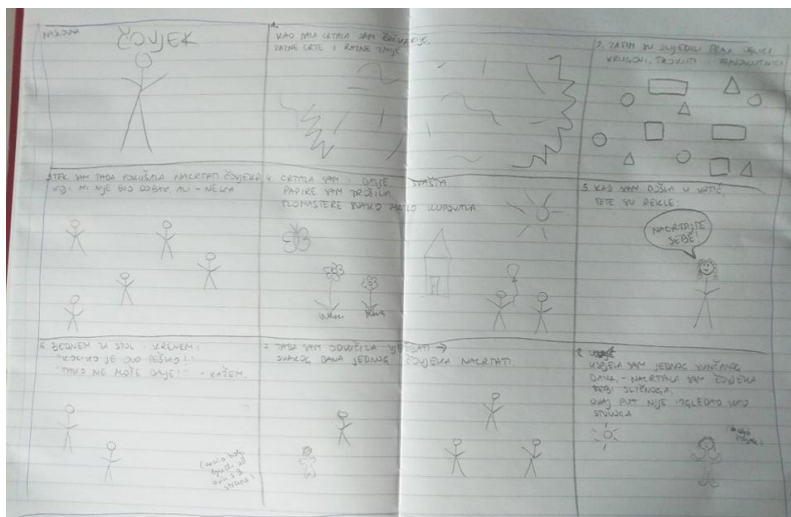 NASLOVNA
ČOVJEK
1.
KAO MALA CRTALA SAM
RAZNE CRTE I RAZNE
2. ZATIM SU SLIJEDILI PRAVI
KRUGOVI, TROKUTI I PRAVOKUTNICI
3. TEK SAM TADA POKUŠALA NACRTATI ČOVJEKA
KOJI MI NIJE BIO DOBAR, ALI - NEKA
4. CRTALA SAM I DALJE SVAŠTA
PAPIRE SAM TROŠILA
FLOMASTERE
5. KAD SAM DOŠLA U VRTIĆ,
TETE SU REKLE:
NACRTAJTE
SEBE!
6. SJEDNEM ZA STOL I KRENEM:
"KOLIKO JE OVO TEŠKO!"
"TAKO NE MOŽE DALJE!" - KAŽEM.
7. TADA SAM ODLUČILA VJEŽBATI →
SVAKOG DANA JEDNOG ČOVJEKA NACRTATI
8.
SAM JEDNOG SUNČANOG
DANA, - NACRTALA SAM ČOVJEKA
SEBI SLIČNOGA,
OVAJ PUT NIJE IZGLEDAO KAO